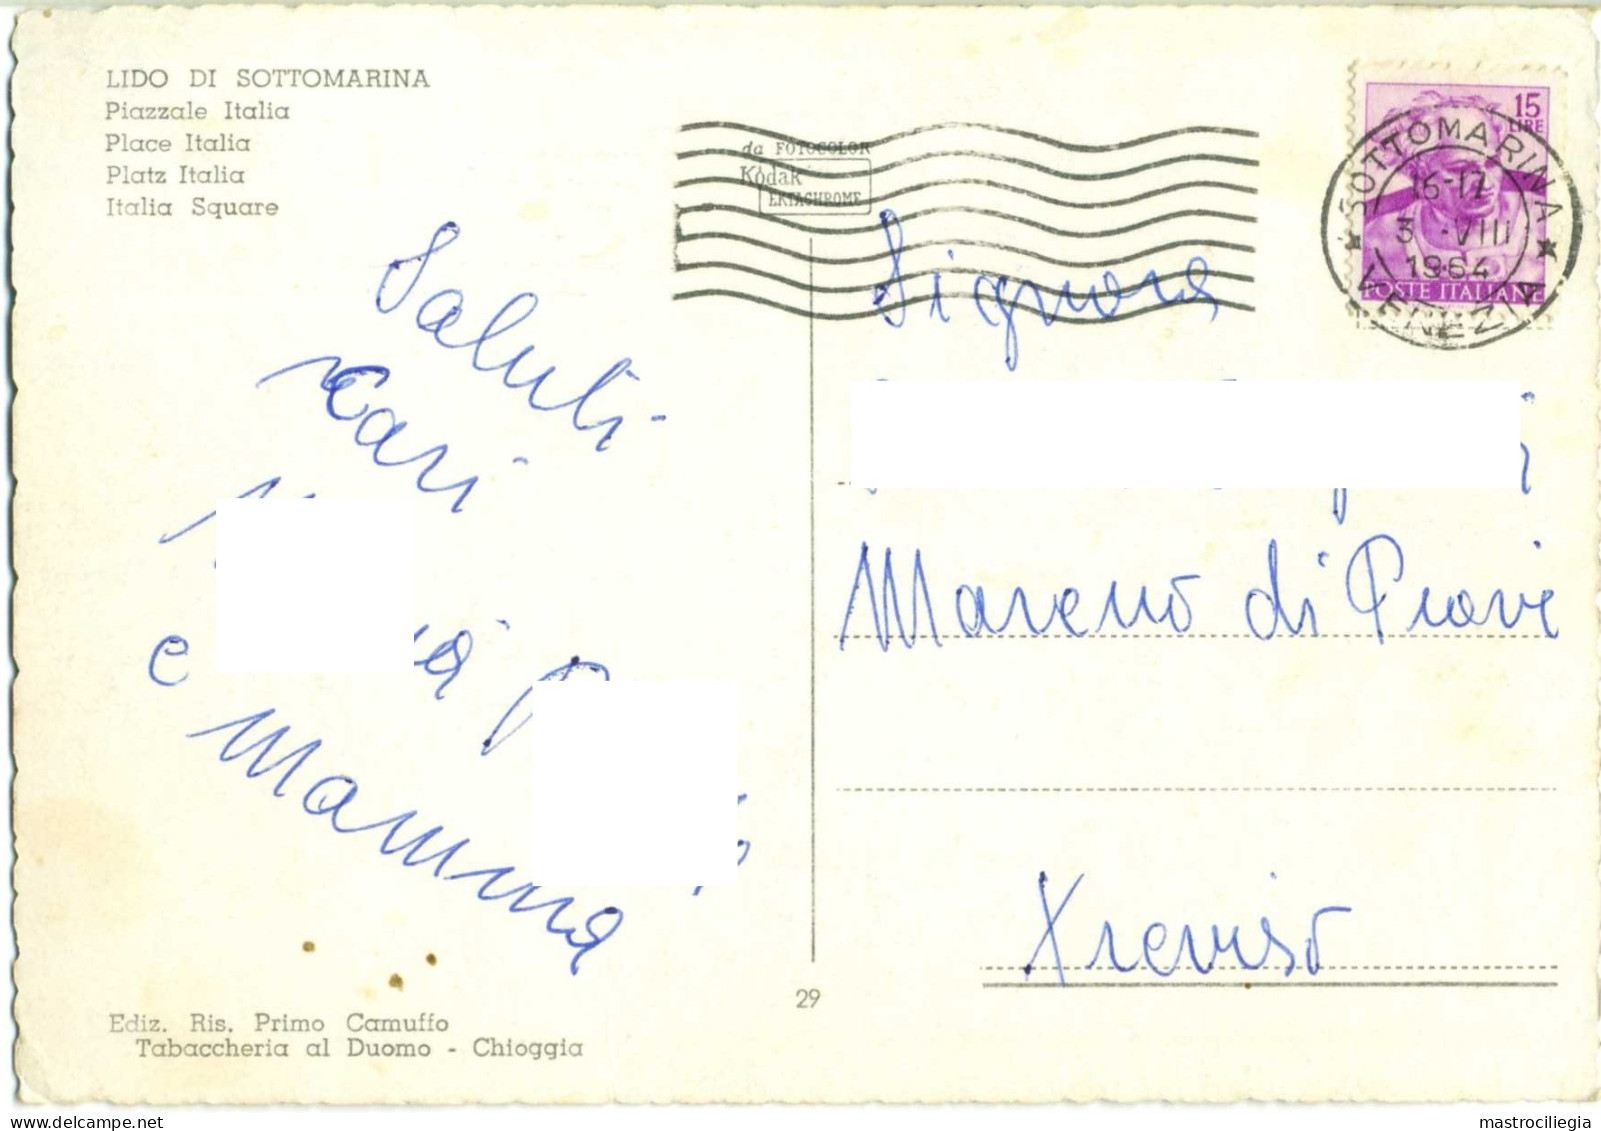 LIDO DI SOTTOMARINA
Piazzale Italia
Place Italia
Platz Italia
Italia Square
da FOTOCOLOR
Kodak
EKTACHROME
15
LIRE
POSTE ITALIANE
SOTTOMARINA
16-17
3 -VIII
1964
VENEZIA
Saluti
cari
e
Mamma
Signora
Mareno di Piave
Treviso
29
Ediz. Ris. Primo Camuffo
Tabaccheria al Duomo - Chioggia
mastrociliegia